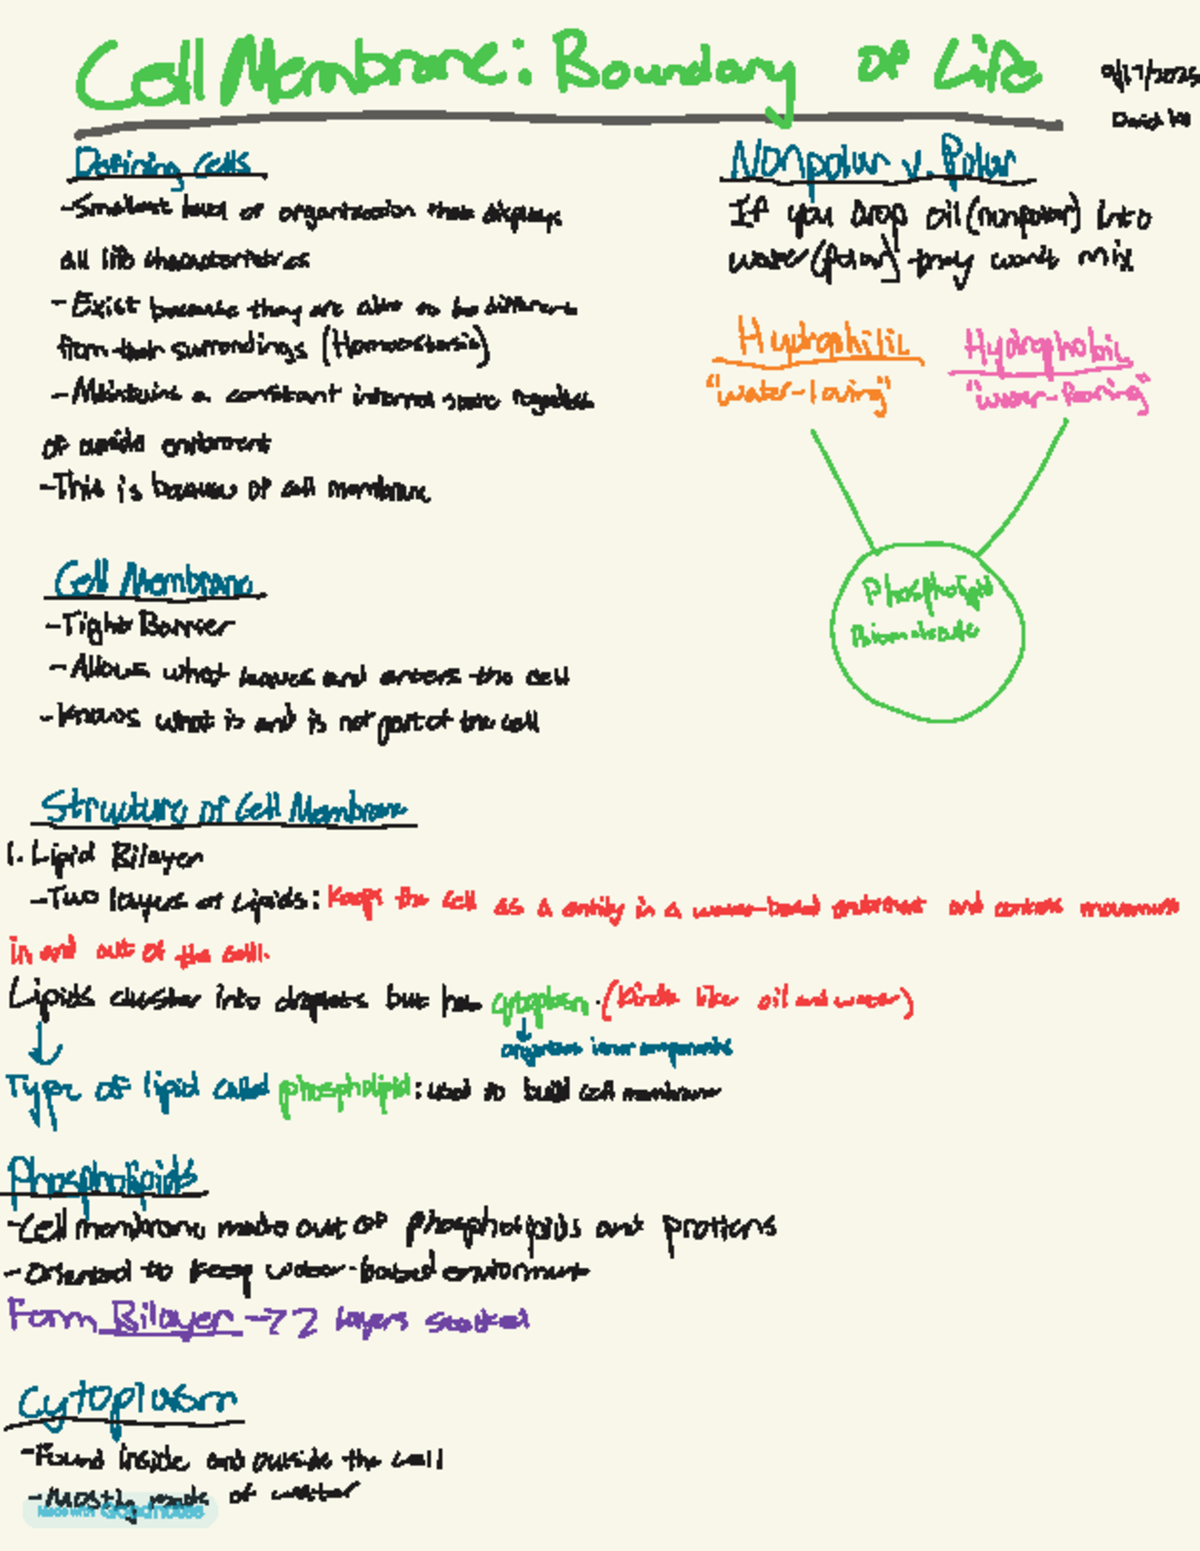 Cell Membrane: Boundary of Life
9/17/2025
David
Defining Cells
-Smallest level of organization that displays
all life characteristics
- Exist because they are able to be different
from their surrondings (Homeostasis)
- Maintains a constant internal state regardless
of outside enviroment
-This is because of cell membrane
Nonpolar v. Polar
If you drop oil (nonpolar) into
water (polar) they won't mix
Hydrophilic
"water-loving"
Hydrophobic
"water-fearing"
Phospholipid
Cell Membrane
-Tight Barrier
- Allows what leaves and enters the cell
- Knows what is and is not part of the cell
Structure of Cell Membrane
1. Lipid Bilayer
-Two layers of Lipids: Keeps the cell as a entity in a water-based enviroment and controls movement
in and out of the cell.
Lipids cluster into droplets but has cytoplasm. (Kinda like oil and water)
inner components
Type of lipid called phospholipid: used to build cell membrane
Phospholipids
-Cell membrane made out of phospholipids and protiens
- Oriented to keep water-based enviorment
Form Bilayer -> 2 layers stacked
Cytoplasm
-Found inside and outside the cell
-Mostly made of water
Made with Goodnotes